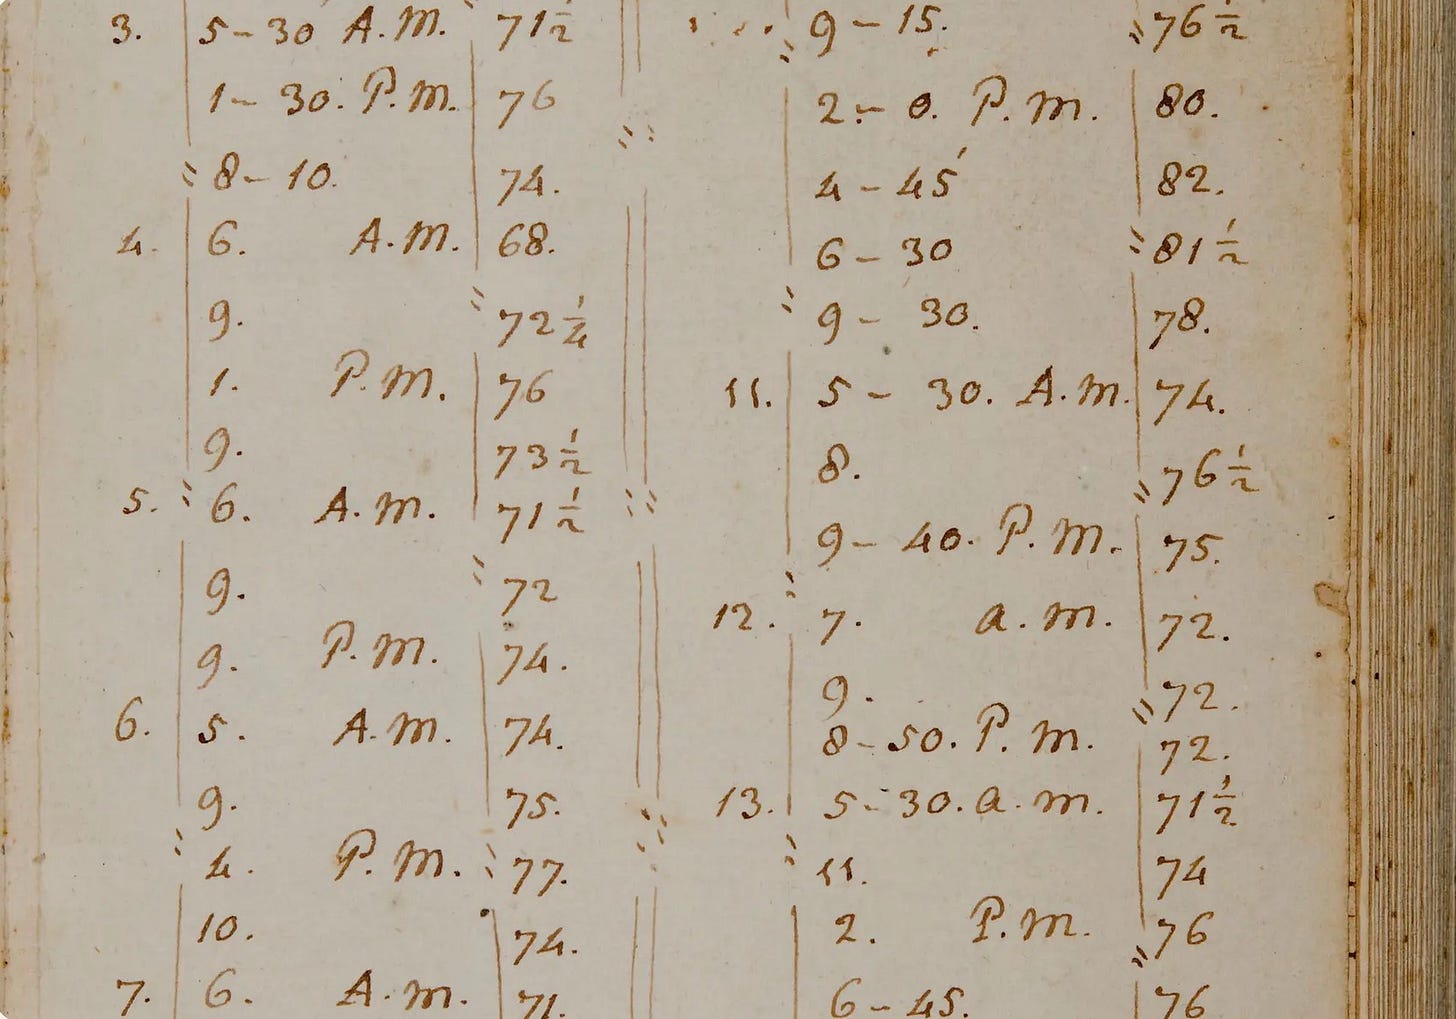 3. 5-30 A.M. 71½
1-30. P.M. 76
8-10. 74.
4. 6. A.M. 68.
9. 72¼
1. P.M. 76
9. 73½
5. 6. A.M. 71½
9. 72
9. P.M. 74.
6. 5. A.M. 74.
9. 75.
4. P.M. 77.
10. 74.
7. 6. A.M. 71.
9-15. 76½
2-0. P.M. 80.
4-45' 82.
6-30 81½
9-30. 78.
11. 5-30. A.M. 74.
8. 76½
9-40. P.M. 75.
12. 7. a.m. 72.
9. 72.
8-50. P.M. 72.
13. 5-30. a.m. 71½
11. 74
2. P.M. 76
6-45. 76